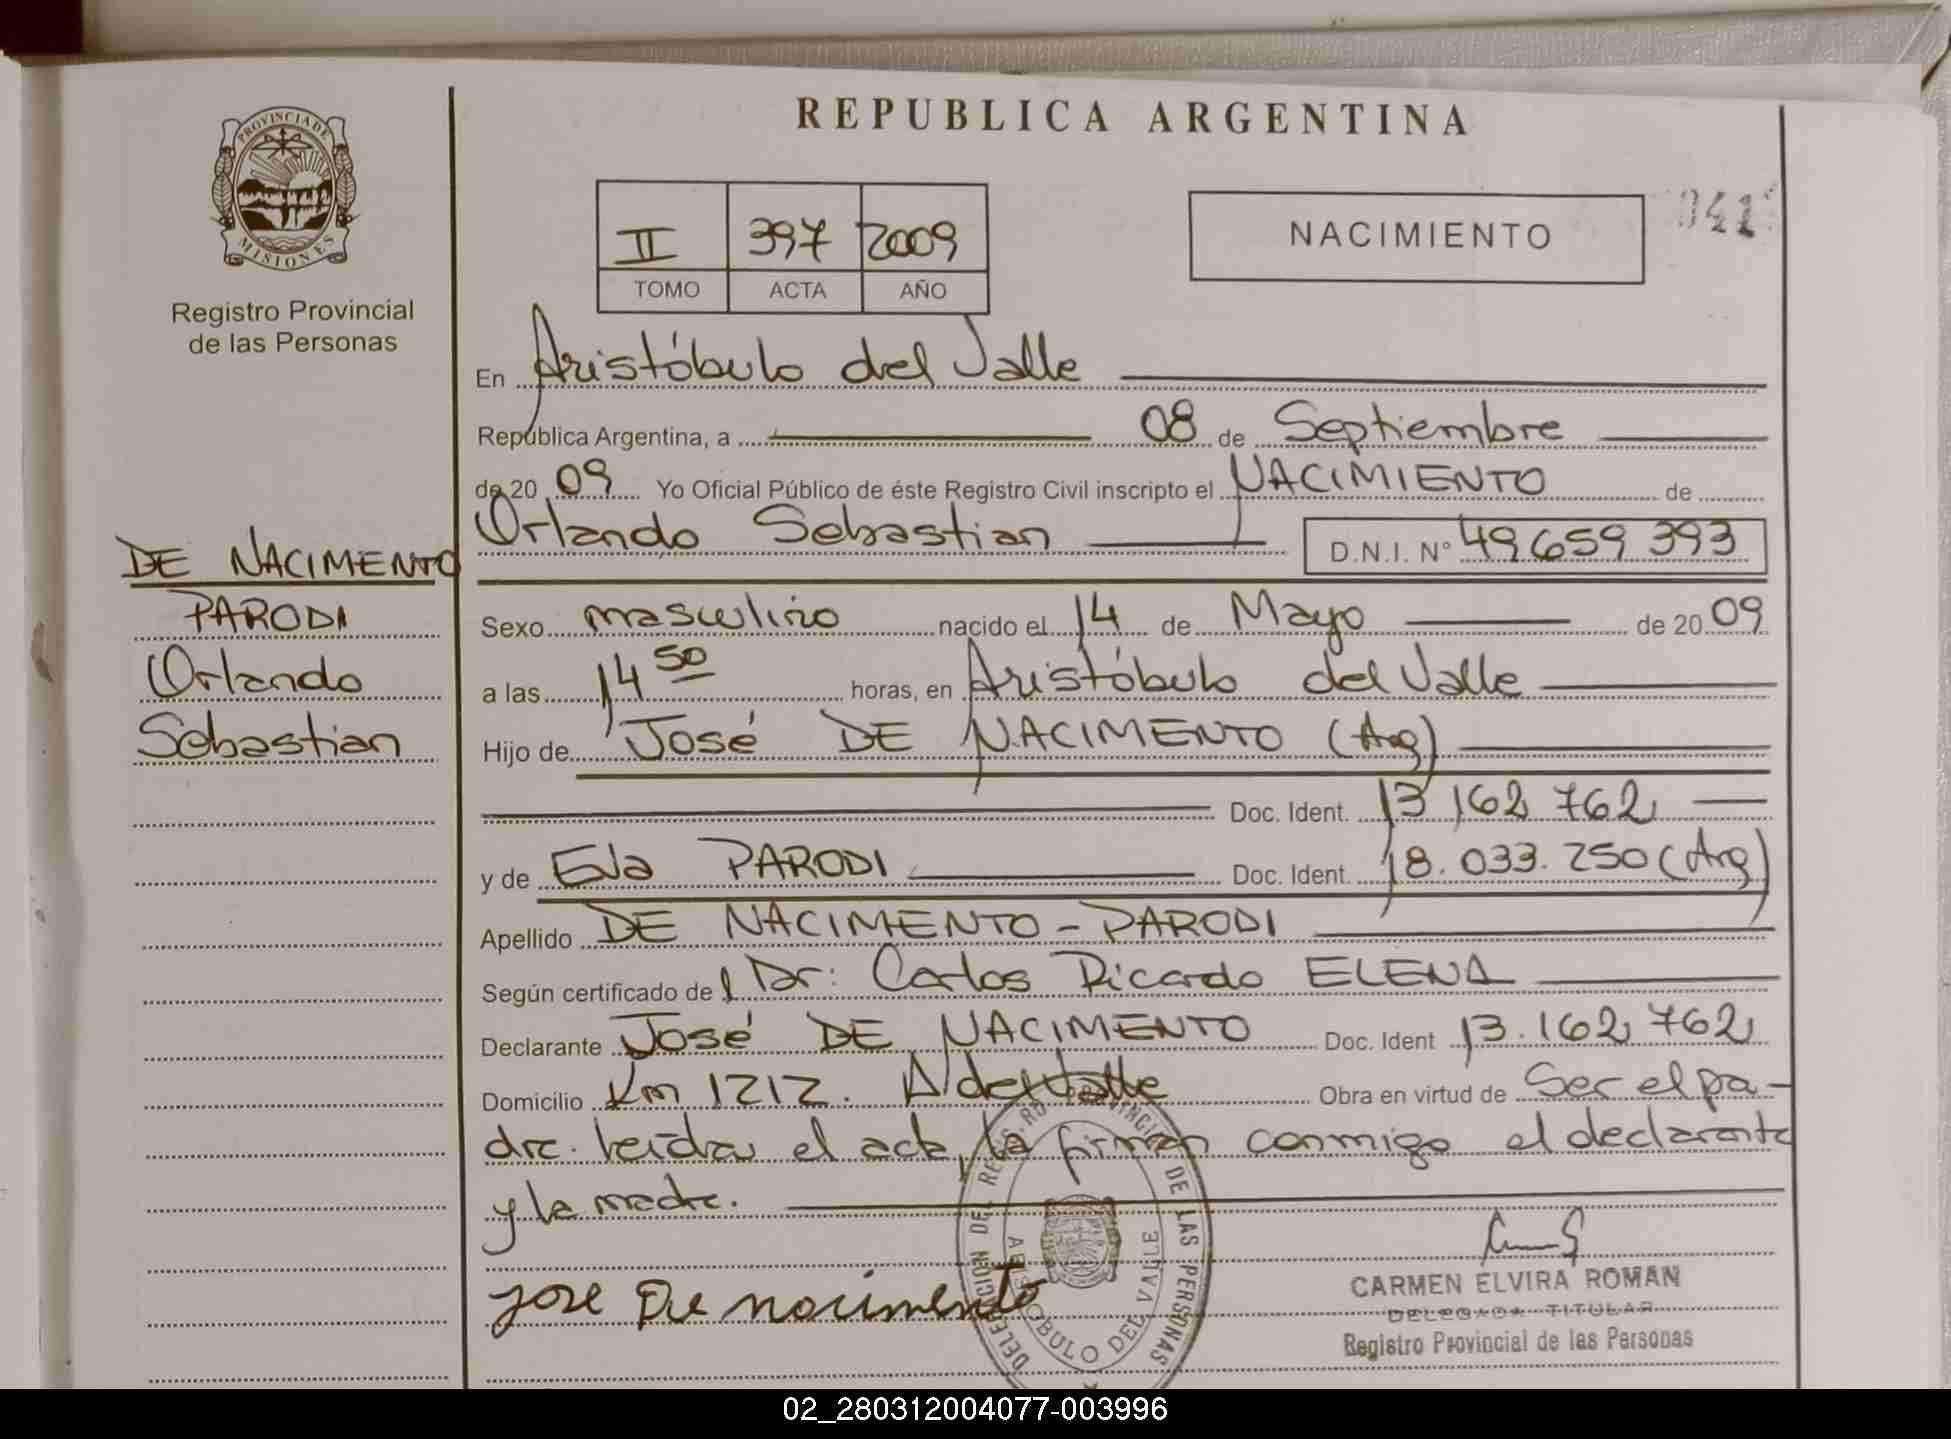 REPUBLICA ARGENTINA
PROVINCIA DE
MISIONES
Registro Provincial
de las Personas
II 397 2009
TOMO ACTA AÑO
NACIMIENTO
En Aristóbulo del Valle
República Argentina, a 08 de Septiembre
de 20 09 Yo Oficial Público de éste Registro Civil inscripto el NACIMIENTO de
Orlando Sebastian D.N.I. N° 49659393
DE NACIMENTO
PARODI
Orlando
Sebastian
Sexo masculino nacido el 14 de Mayo de 20 09
a las 14 50 horas, en Aristóbulo del Valle
Hijo de José DE NACIMENTO (Arg)
Doc. Ident. 13 162 762
y de Eva PARODI Doc. Ident. 18.033.250 (Arg)
Apellido DE NACIMENTO - PARODI
Según certificado de l Dr: Carlos Ricardo ELENA
Declarante José DE NACIMENTO Doc. Ident 13.162 762
Domicilio Km 1212. A del Valle Obra en virtud de Ser el pa-
dre. leída el acta, la firman conmigo el declarante
y la madre.
Jose De nacimento
DELEGACION DEL REG PROVINCIAL DE LAS PERSONAS
ARISTOBULO DEL VALLE
CARMEN ELVIRA ROMAN
DELEGADA TITULAR
Registro Provincial de las Personas
02_280312004077-003996